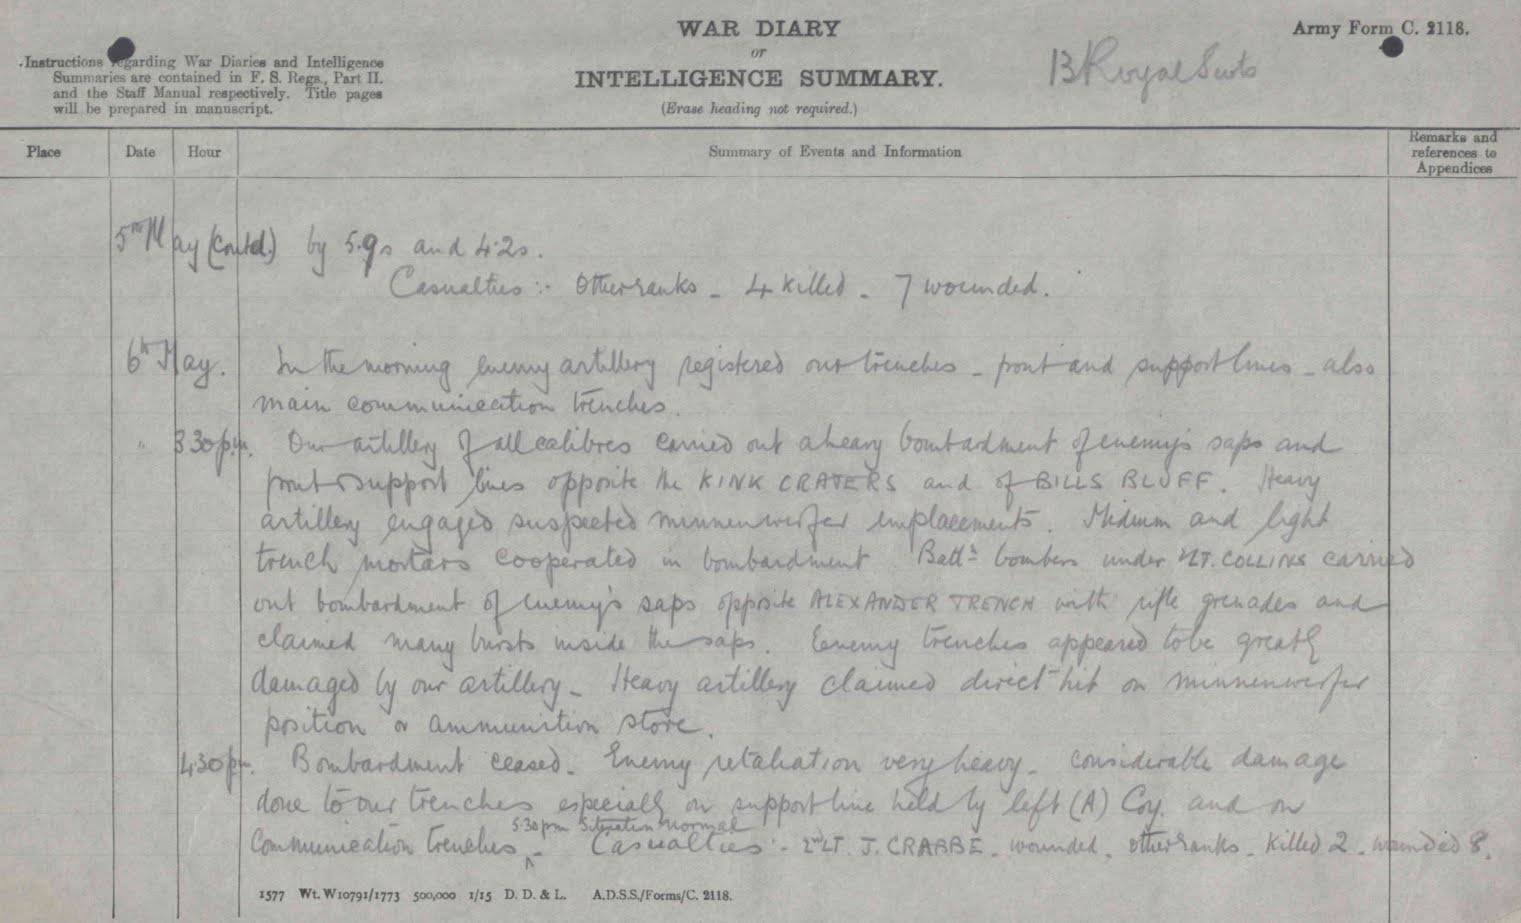 WAR DIARY
or
INTELLIGENCE SUMMARY.
(Erase heading not required.)
Army Form C. 2118.
Instructions regarding War Diaries and Intelligence
Summaries are contained in F. S. Regs., Part II.
and the Staff Manual respectively. Title pages
will be prepared in manuscript.
13 Royal Scots
Place Date Hour Summary of Events and Information Remarks and references to Appendices
5th May (contd.) by 5.9s and 4.2s.
Casualties :- Other ranks - 4 killed - 7 wounded.
6th May. In the morning enemy artillery registered our trenches - front and support lines - also
main communication trenches.
" 3 30 p.m. Our artillery of all calibres carried out a heavy bombardment of enemy's saps and
front & support lines opposite the KINK CRATERS and of BILLS BLUFF. Heavy
artillery engaged suspected minnenwerfer emplacements. Medium and light
trench mortars cooperated in bombardment. Battn bombers under 2LT. COLLINS carried
out bombardment of enemy's saps opposite ALEXANDER TRENCH with rifle grenades and
claimed many bursts inside the saps. Enemy trenches appeared to be greatly
damaged by our artillery - Heavy artillery claimed direct hit on minnenwerfer
position or ammunition store.
4.30 pm. Bombardment ceased. Enemy retaliation very heavy - considerable damage
done to our trenches especially on support line held by left (A) Coy. and on
5.30 pm Situation normal
Communication trenches - Casualties :- 2nd LT. J. CRABBE - wounded. other ranks - killed 2 - wounded 8.
1577 Wt. W10791/1773 500,000 1/15 D. D. & L. A.D.S.S./Forms/C. 2118.